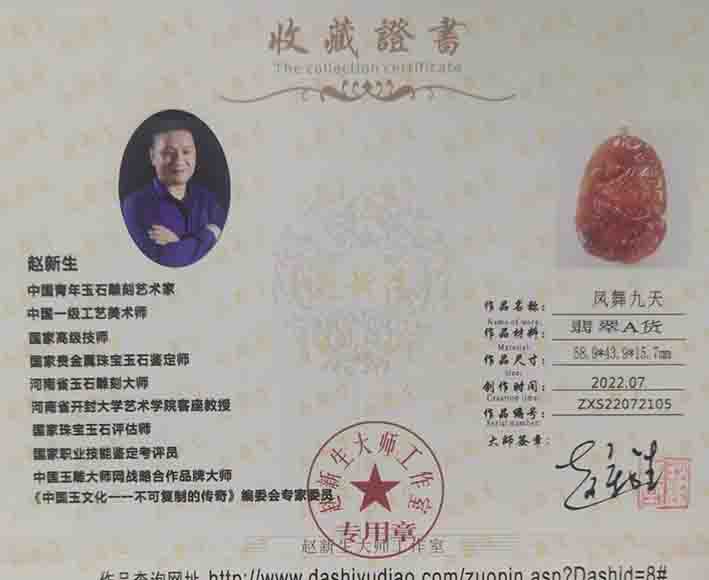 收藏證書
The collection certificate
赵新生
中国青年玉石雕刻艺术家
中国一级工艺美术师
国家高级技师
国家贵金属珠宝玉石鉴定师
河南省玉石雕刻大师
河南省开封大学艺术学院客座教授
国家珠宝玉石评估师
国家职业技能鉴定考评员
中国玉雕大师网战略合作品牌大师
《中国玉文化一一不可复制的传奇》编委会专家委员
作品名称: 凤舞九天
Name of work:
作品材料: 翡翠A货
Material:
作品尺寸: 58.9*43.9*15.7mm
Size:
创作时间: 2022.07
Creation time:
作品编号: ZXS22072105
Serial number:
大师签章: 赵新生
赵新生大师工作室
专用章
赵新生大师工作室
作品查询网址 http://www.dashiyudiao.com/zuopin.asp?Dashid=8#